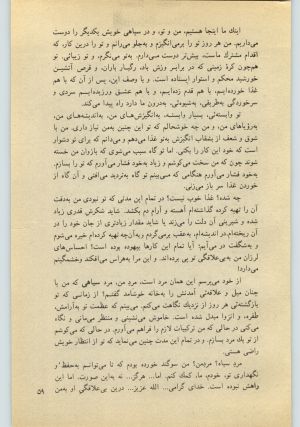 اینك ما اینجا هستیم. من و تو، و در سیاهی خویش یکدیگر را دوست
می‌داریم. من هر روز تو را برمی‌انگیزم و به‌جلو می‌رانم و تو را درین کار، که
اقدام مشترك ماست، بیش‌تر دوست می‌دارم. به‌تو می‌نگرم، و تو زیبائی. تو
هم‌چون کرهٔ زمینی که در برابر وزش باد، رگبار باران، و قرص آتشین
خورشید محکم و استوار ایستاده است. و با وصف این، پس از آن که با هم
غذا خورده‌ایم، با هم قدم زده‌ایم، و با هم عشق ورزیده‌ایم سردی و
سرخوردگی به‌ظریفی، به‌شیوه‌ئی، به‌درون ما دارد راه پیدا می‌کند.
تو وابسته‌ئی، بسیار وابسته، به‌انگیزش‌های من، به‌اندیشه‌های من،
به‌رؤیاهای من، و من چه خوشحالم که تو این چنین به‌من نیاز داری. من با
شوق و شعف از بشقاب انگیزش به‌تو غذا می‌دهم و می‌دانم که برای تو دشوار
است که خود این کار را بکنی. اما تو گاه سبب می‌شوی که بازوان من خسته
شوند چون که من سخت می‌کوشم و زیاد به‌خود فشار می‌آورم که تو را بسازم.
به‌خود فشار می‌آورم هنگامی که می‌بینم تو گاه به‌تردید می‌افتی و آن گاه از
خوردن غذا سر باز می‌زنی.
چه شده؟ غذا خوب نیست؟ در تمام این مدتی که تو نبودی من به‌دقت
آن را تهیه کرده گذاشته‌ام آهسته و آرام دم بکشد. شاید شکرش قدری زیاد
شده و شیرینی آن دلت را می‌زند یا شاید مقدار زیادتری از جان خود را در
آن ریخته‌ام. در اندیشه‌ام، به‌عقب برمی‌گردم و به‌آن‌چه تهیه کرده‌ام خیره می‌شوم
و به‌شگفت در می‌آیم: آیا تمام این کارها بیهوده بوده است؟ احساس‌های
لرزان من به‌بی‌علاقگی تو پی برده‌اند. و این مرا به‌هراس می‌افکند وخشمگینم
می‌دارد!
از خود می‌پرسم این همان مرد است، مردِ من، مرد سیاهی که من با
چنان میل و علاقه‌ئی آمدنش را به‌خانه خوشامد گفتم؟ از زمانی که تو
بازگشتی هر روز از نزدیك نگاهت می‌کنم. می‌بینم که عظمت تو به‌آرامش،
طفره، و انزوا مبدل شده است. خاموش می‌نشینی و منتظر می‌مانی و نگاه
می‌کنی در حالی که من ترکیبات لازم را فراهم می‌آورم. در حالی که می‌کوشم
از تو یك مرد بسازم. و در تمام این مدت چنین می‌نماید که تو از انتظار خویش
راضی هستی.
مرد سیاه؟ مردمن؟ من سوگند خورده بودم که تا می‌توانم به‌حفظ و
نگهداری تو، خودم، ما، کمك کنم. اما... هرگز... نه به‌این صورت. اما این
واهش نبوده است. خدای گرامی... الله عزیز... درین بی‌علاقگی او به‌من
۵۹